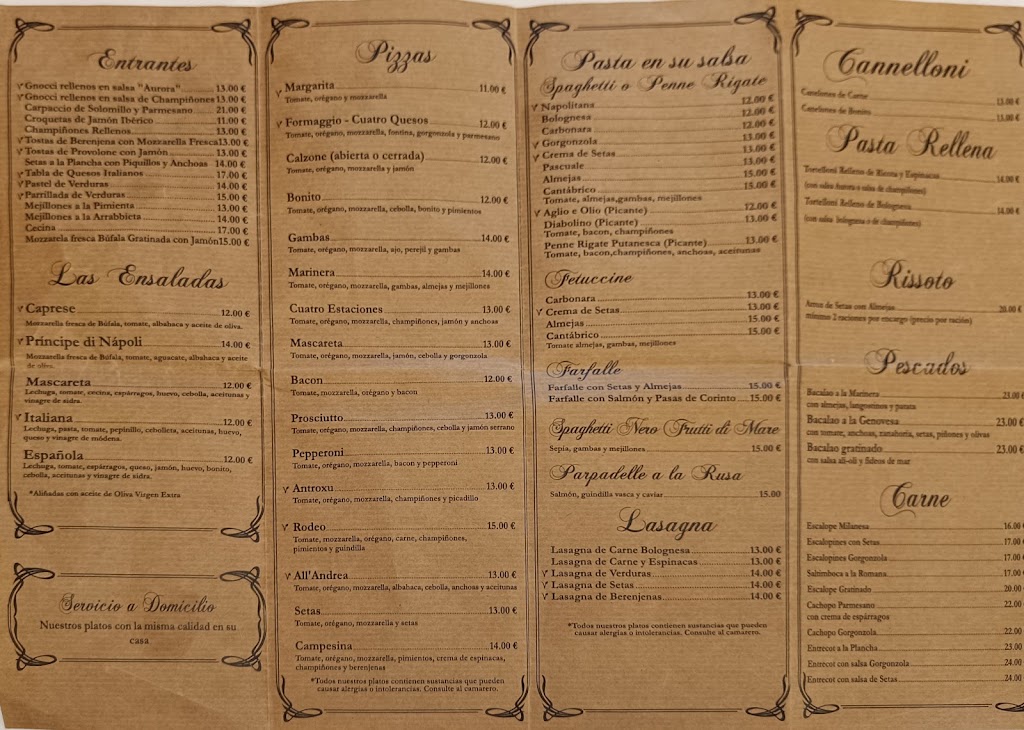 Entrantes
Gnocci rellenos en salsa "Aurora" 13.00 €
Gnocci rellenos en salsa de Champiñones 13.00 €
Carpaccio de Solomillo y Parmesano 21.00 €
Croquetas de Jamón Ibérico 11.00 €
Champiñones Rellenos 13.00 €
Tostas de Berenjena con Mozzarella Fresca 13.00 €
Tostas de Provolone con Jamón 13.00 €
Setas a la Plancha con Piquillos y Anchoas 14.00 €
Tabla de Quesos Italianos 17.00 €
Pastel de Verduras 14.00 €
Parrillada de Verduras 15.00 €
Mejillones a la Pimienta 13.00 €
Mejillones a la Arrabbieta 14.00 €
Cecina 17.00 €
Mozzarela fresca Búfala Gratinada con Jamón 15.00 €
Las Ensaladas
Caprese 12.00 €
Mozzarella fresca de Búfala, tomate, albahaca y aceite de oliva.
Principe di Nápoli 14.00 €
Mozzarella fresca de Búfala, tomate, aguacate, albahaca y aceite
de oliva.
Mascareta 12.00 €
Lechuga, tomate, cecina, espárragos, huevo, cebolla, aceitunas y
vinagre de sidra.
Italiana 12.00 €
Lechuga, pasta, tomate, pepinillo, cebolleta, aceitunas, huevo,
queso y vinagre de módena.
Española 12.00 €
Lechuga, tomate, espárragos, queso, jamón, huevo, bonito,
cebolla, aceitunas y vinagre de sidra.
*Aliñadas con aceite de Oliva Virgen Extra
Servicio a Domicilio
Nuestros platos con la misma calidad en su
casa
Pizzas
Margarita 11.00 €
Tomate, orégano y mozzarella
Formaggio - Cuatro Quesos 12.00 €
Tomate, orégano, mozzarella, fontina, gorgonzola y parmesano
Calzone (abierta o cerrada) 12.00 €
Tomate, orégano, mozzarella y jamón
Bonito 12.00 €
Tomate, orégano, mozzarella, cebolla, bonito y pimientos
Gambas 14.00 €
Tomate, orégano, mozzarella, ajo, perejil y gambas
Marinera 14.00 €
Tomate, orégano, mozzarella, gambas, almejas y mejillones
Cuatro Estaciones 13.00 €
Tomate, orégano, mozzarella, champiñones, jamón y anchoas
Mascareta 13.00 €
Tomate, orégano, mozzarella, jamón, cebolla y gorgonzola
Bacon 12.00 €
Tomate, mozzarella, orégano y bacon
Prosciutto 13.00 €
Tomate, orégano, mozzarella, champiñones, cebolla y jamón serrano
Pepperoni 13.00 €
Tomate, orégano, mozzarella, bacon y pepperoni
Antroxu 13.00 €
Tomate, orégano, mozzarella, champiñones y picadillo
Rodeo 15.00 €
Tomate, mozzarella, orégano, carne, champiñones,
pimientos y guindilla
All'Andrea 13.00 €
Tomate, orégano, mozzarella, albahaca, cebolla, anchoas y aceitunas
Setas 13.00 €
Tomate, orégano, mozzarella y setas
Campesina 14.00 €
Tomate, orégano, mozzarella, pimientos, crema de espinacas,
champiñones y berenjenas
*Todos nuestros platos contienen sustancias que pueden
causar alergias o intolerancias. Consulte al camarero.
Pasta en su salsa
Spaghetti o Penne Rigate
Napolitana 12.00 €
Bolognesa 12.00 €
Carbonara 12.00 €
Gorgonzola 13.00 €
Crema de Setas 13.00 €
Pascuale 13.00 €
Almejas 15.00 €
Cantábrico 15.00 €
Tomate, almejas, gambas, mejillones
Aglio e Olio (Picante) 12.00 €
Diabolino (Picante) 13.00 €
Tomate, bacon, champiñones
Penne Rigate Putanesca (Picante) 13.00 €
Tomate, bacon, champiñones, anchoas, aceitunas
Fetuccine
Carbonara 13.00 €
Crema de Setas 13.00 €
Almejas 15.00 €
Cantábrico 15.00 €
Tomate almejas, gambas, mejillones
Farfalle
Farfalle con Setas y Almejas 15.00 €
Farfalle con Salmón y Pasas de Corinto 15.00 €
Spaghetti Nero Frutti di Mare
Sepia, gambas y mejillones 15.00 €
Parpadelle a la Rusa
Salmón, guindilla vasca y caviar 15.00
Lasagna
Lasagna de Carne Bolognesa 13.00 €
Lasagna de Carne y Espinacas 13.00 €
Lasagna de Verduras 14.00 €
Lasagna de Setas 14.00 €
Lasagna de Berenjenas 14.00 €
*Todos nuestros platos contienen sustancias que pueden
causar alergias o intolerancias. Consulte al camarero.
Cannelloni
Canelones de Carne 13.00 €
Canelones de Bonito 13.00 €
Pasta Rellena
Tortelloni Relleno de Ricota y Espinacas 14.00 €
(con salsa aurora o salsa de champiñones)
Tortelloni Relleno de Bolognesa 14.00 €
(con salsa bolognesa o de champiñones)
Rissoto
Arroz de Setas con Almejas 20.00 €
mínimo 2 raciones por encargo (precio por ración)
Pescados
Bacalao a la Marinera 23.00 €
con almejas, langostinos y patata
Bacalao a la Genovesa 23.00 €
con tomate, anchoas, zanahoria, setas, piñones y olivas
Bacalao gratinado 23.00 €
con salsa ali-oli y fideos de mar
Carne
Escalope Milanesa 16.00 €
Escalopines con Setas 17.00
Escalopines Gorgonzola 17.00
Saltimboca a la Romana 17.00
Escalope Gratinado 20.00
Cachopo Parmesano 22.00
con crema de espárragos
Cachopo Gorgonzola 22.00
Entrecot a la Plancha 23.00
Entrecot con salsa Gorgonzola 24.00
Entrecot con salsa de Setas 24.00